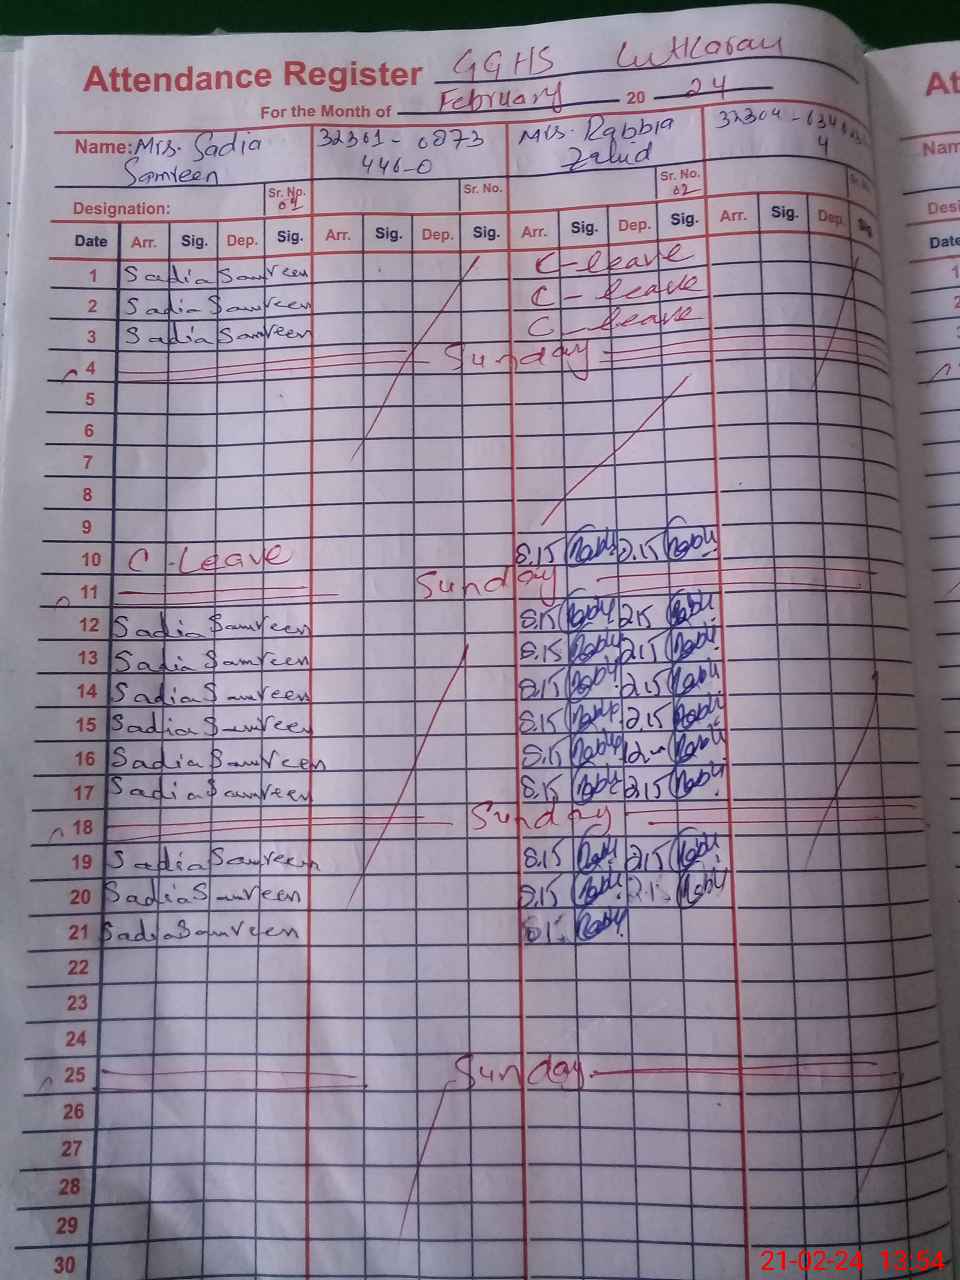 Attendance Register GGHS
For the Month of February 20 24
Name: Mrs. Sadia 32301-0873 Mrs. Rabbia
Samreen 446-0 Zahid 4
Sr. No. Sr. No. Sr. No.
Designation: 01 02
Date Arr. Sig. Dep. Sig. Arr. Sig. Dep. Sig. Arr. Sig. Dep. Sig. Arr. Sig. Dep. Sig
1 Sadia Samreen C-leave
2 Sadia Samreen C-leave
3 Sadia Samreen C-leave
4 Sunday
5
6
7
8
9
10 C-Leave 8.15 Rabi 2.15 Rabi
11 Sunday
12 Sadia Samreen 8.15 Rabi 2.15 Rabi
13 Sadia Samreen 8.15 Rabi 2.15 Rabi
14 Sadia Samreen 8.15 Rabi 2.15 Rabi
15 Sadia Samreen 8.15 Rabi 2.15 Rabi
16 Sadia Samreen 8.15 Rabi 12 Rabi
17 Sadia Samreen 8.15 Rabi 2.15 Rabi
18 Sunday
19 Sadia Samreen 8.15 Rabi 2.15 Rabi
20 Sadia Samreen 8.15 Rabi 2.15 Rabi
21 Sadia Samreen Rabi
22
23
24
25 Sunday
26
27
28
29
30
At
Nam
Desi
Date
21-02-24 13:54